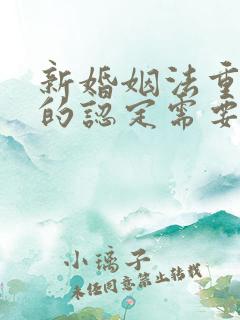 新婚姻法重
的認定需要
小璃子
未经同意禁止转载